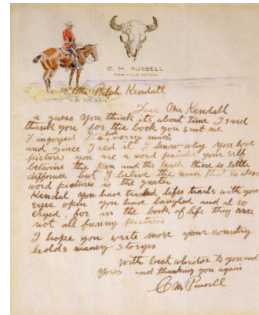 C. M. RUSSELL
Mr Ralph Kendall
Dear Mr Kendall
I guess you think its about time I said
thank you for the book you sent me
I injoyed it verry much
and since I red it I know why you
pictures you are a word painter your self
betwine the pen and the brush there is little
diffornce but I belive the man that
word pictures is the greater
Kendal You have tracked lifes trails with your
eyes open You have laughed and
for in the book of life they are
not all funny pictures
I hope you write more your country
holds maney storyes
With best whishes to you and
yours and thanking you again
C M Russell